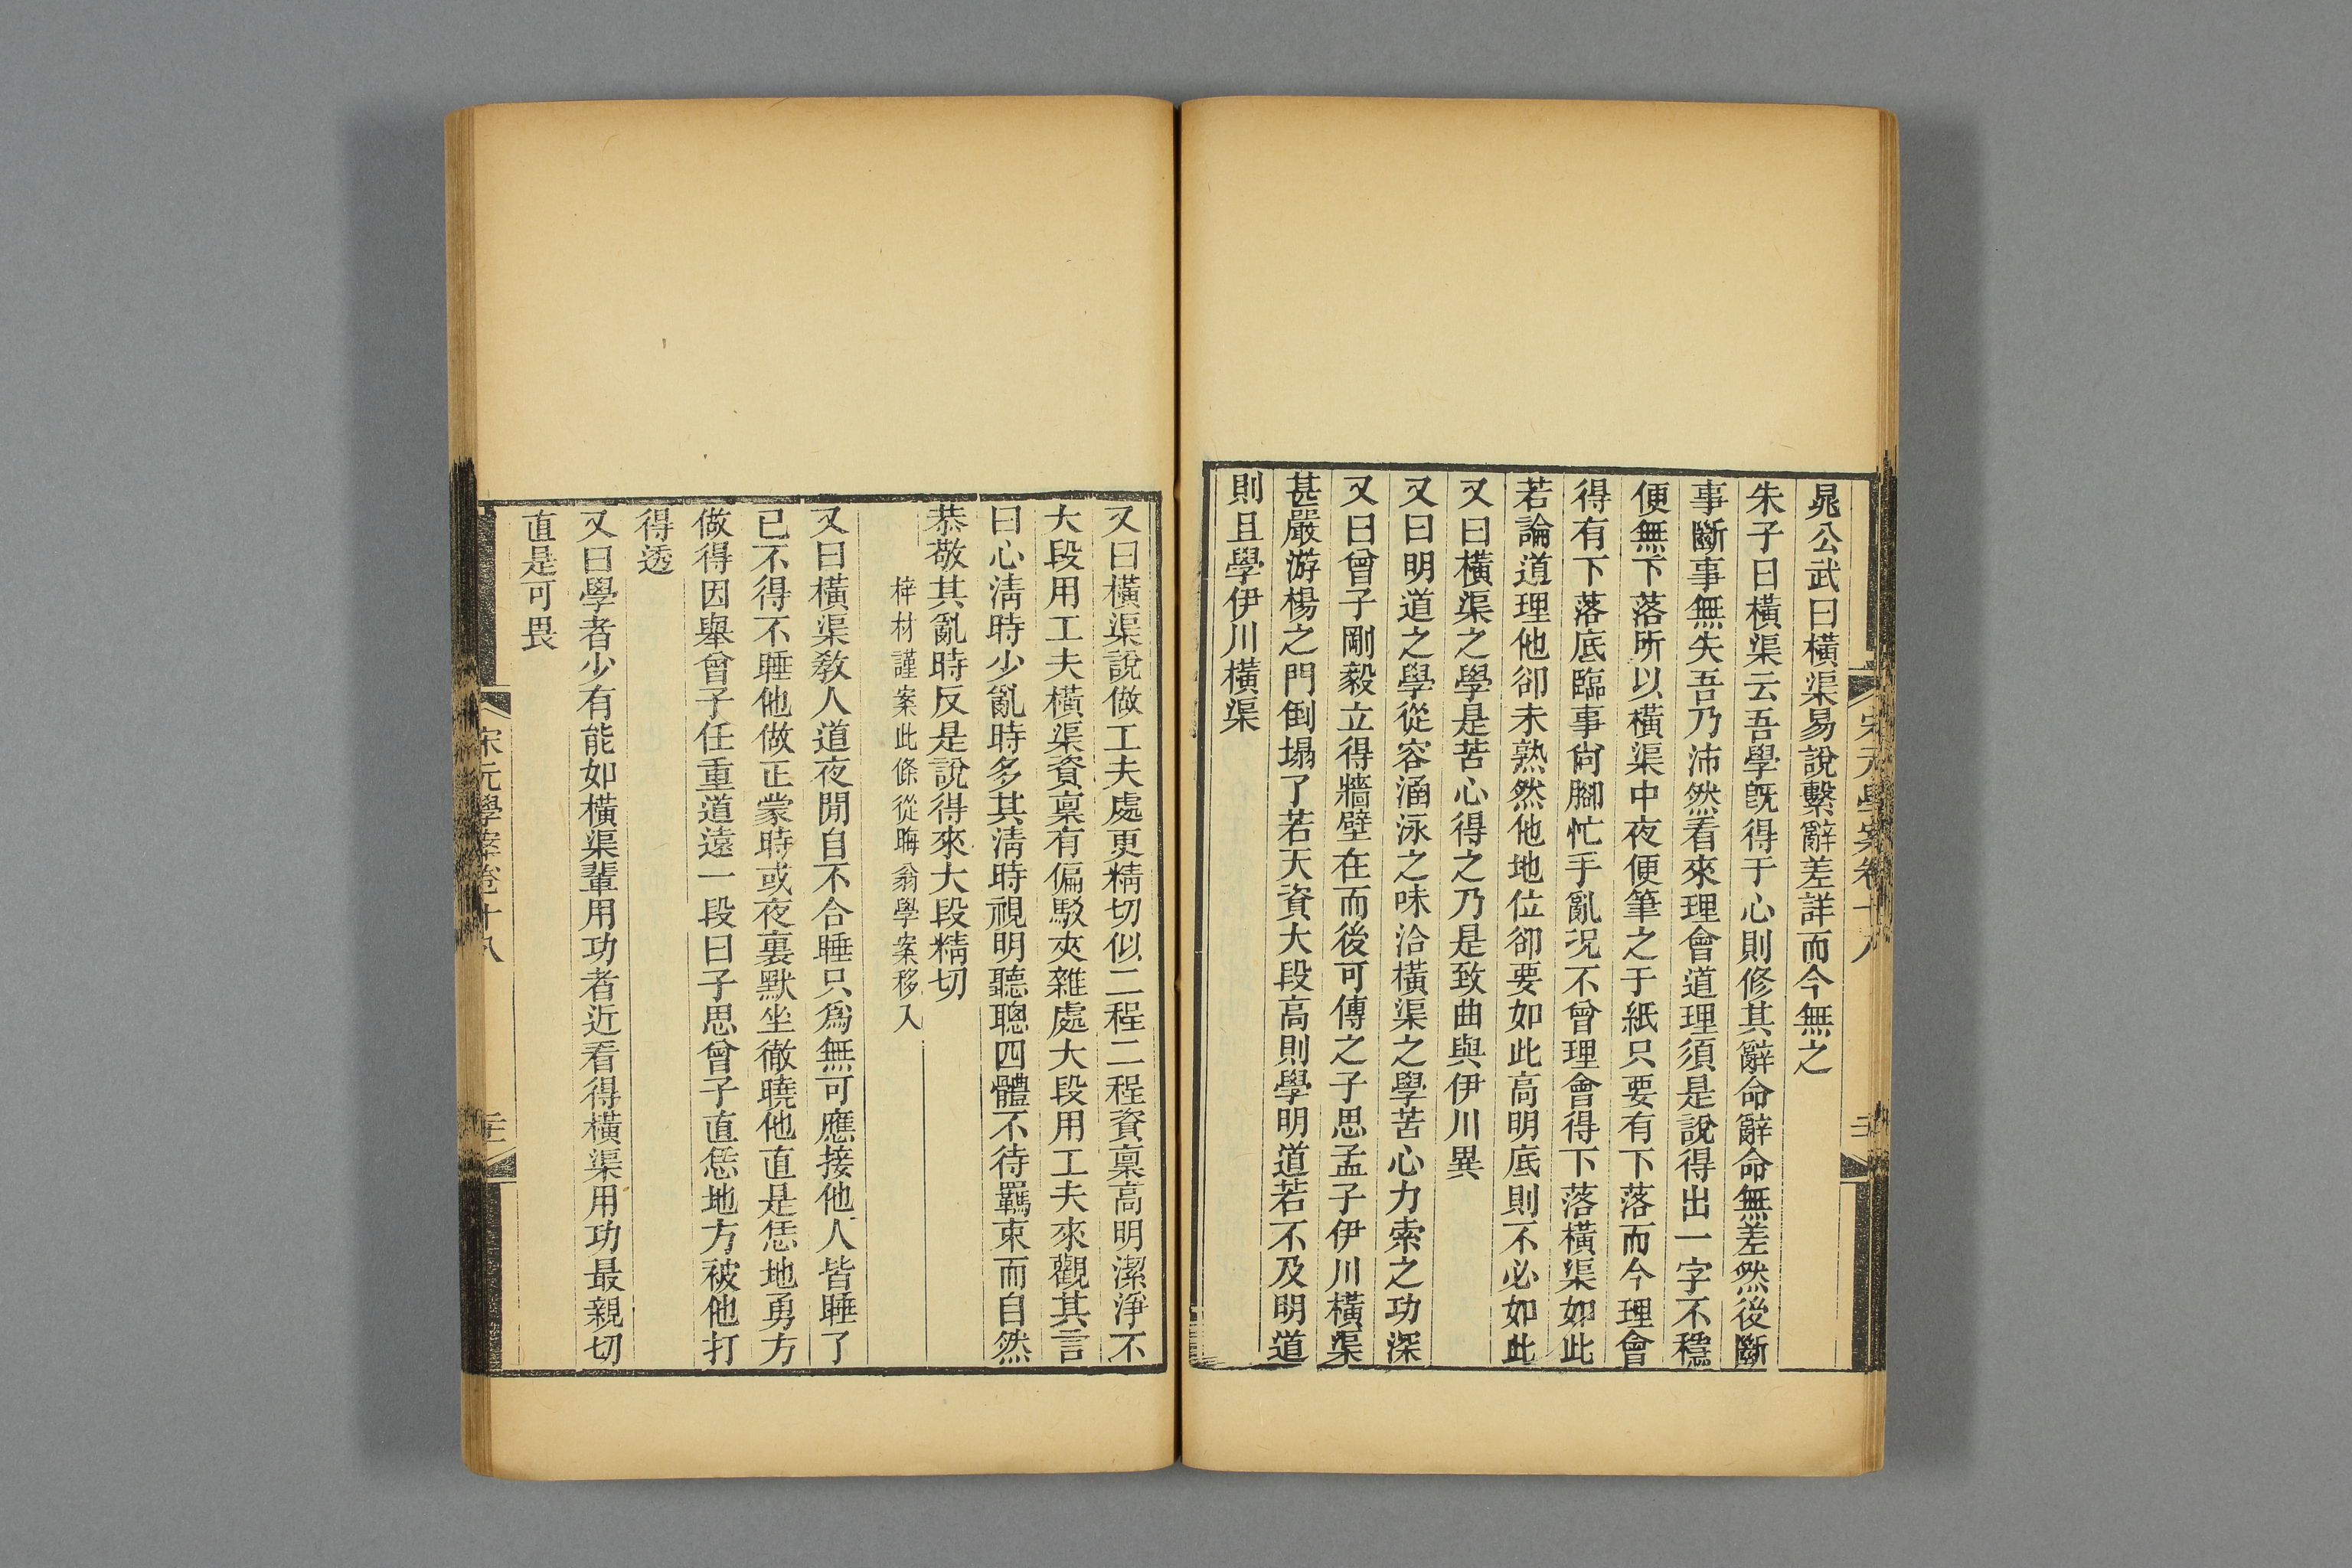 宋元學案卷十八
晁公武曰橫渠易說繫辭差詳而今無之
朱子曰橫渠云吾學旣得于心則修其辭命辭命無差然後斷
事斷事無失吾乃沛然看來理會道理須是說得出一字不穩
便無下落所以橫渠中夜便筆之于紙只要有下落而今理會
得有下落底臨事尙腳忙手亂況不曾理會得下落橫渠如此
若論道理他卻未熟然他地位卻要如此高明底則不必如此
又曰橫渠之學是苦心得之乃是致曲與伊川異
又曰明道之學從容涵泳之味洽橫渠之學苦心力索之功深
又曰曾子剛毅立得牆壁在而後可傳之子思孟子伊川橫渠
甚嚴游楊之門倒塌了若天資大段高則學明道若不及明道
則且學伊川橫渠
又曰橫渠說做工夫處更精切似二程二程資稟高明潔淨不
大段用工夫橫渠資稟有偏駁夾雜處大段用工夫來觀其言
曰心淸時少亂時多其淸時視明聽聰四體不待羈束而自然
恭敬其亂時反是說得來大段精切
梓材謹案此條從晦翁學案移入
又曰橫渠敎人道夜閒自不合睡只爲無可應接他人皆睡了
已不得不睡他做正蒙時或夜裏默坐徹曉他直是恁地勇方
做得因舉曾子任重道遠一段曰子思曾子直恁地方被他打
得透
又曰學者少有能如橫渠輩用功者近看得橫渠用功最親切
直是可畏
宋元學案卷十八